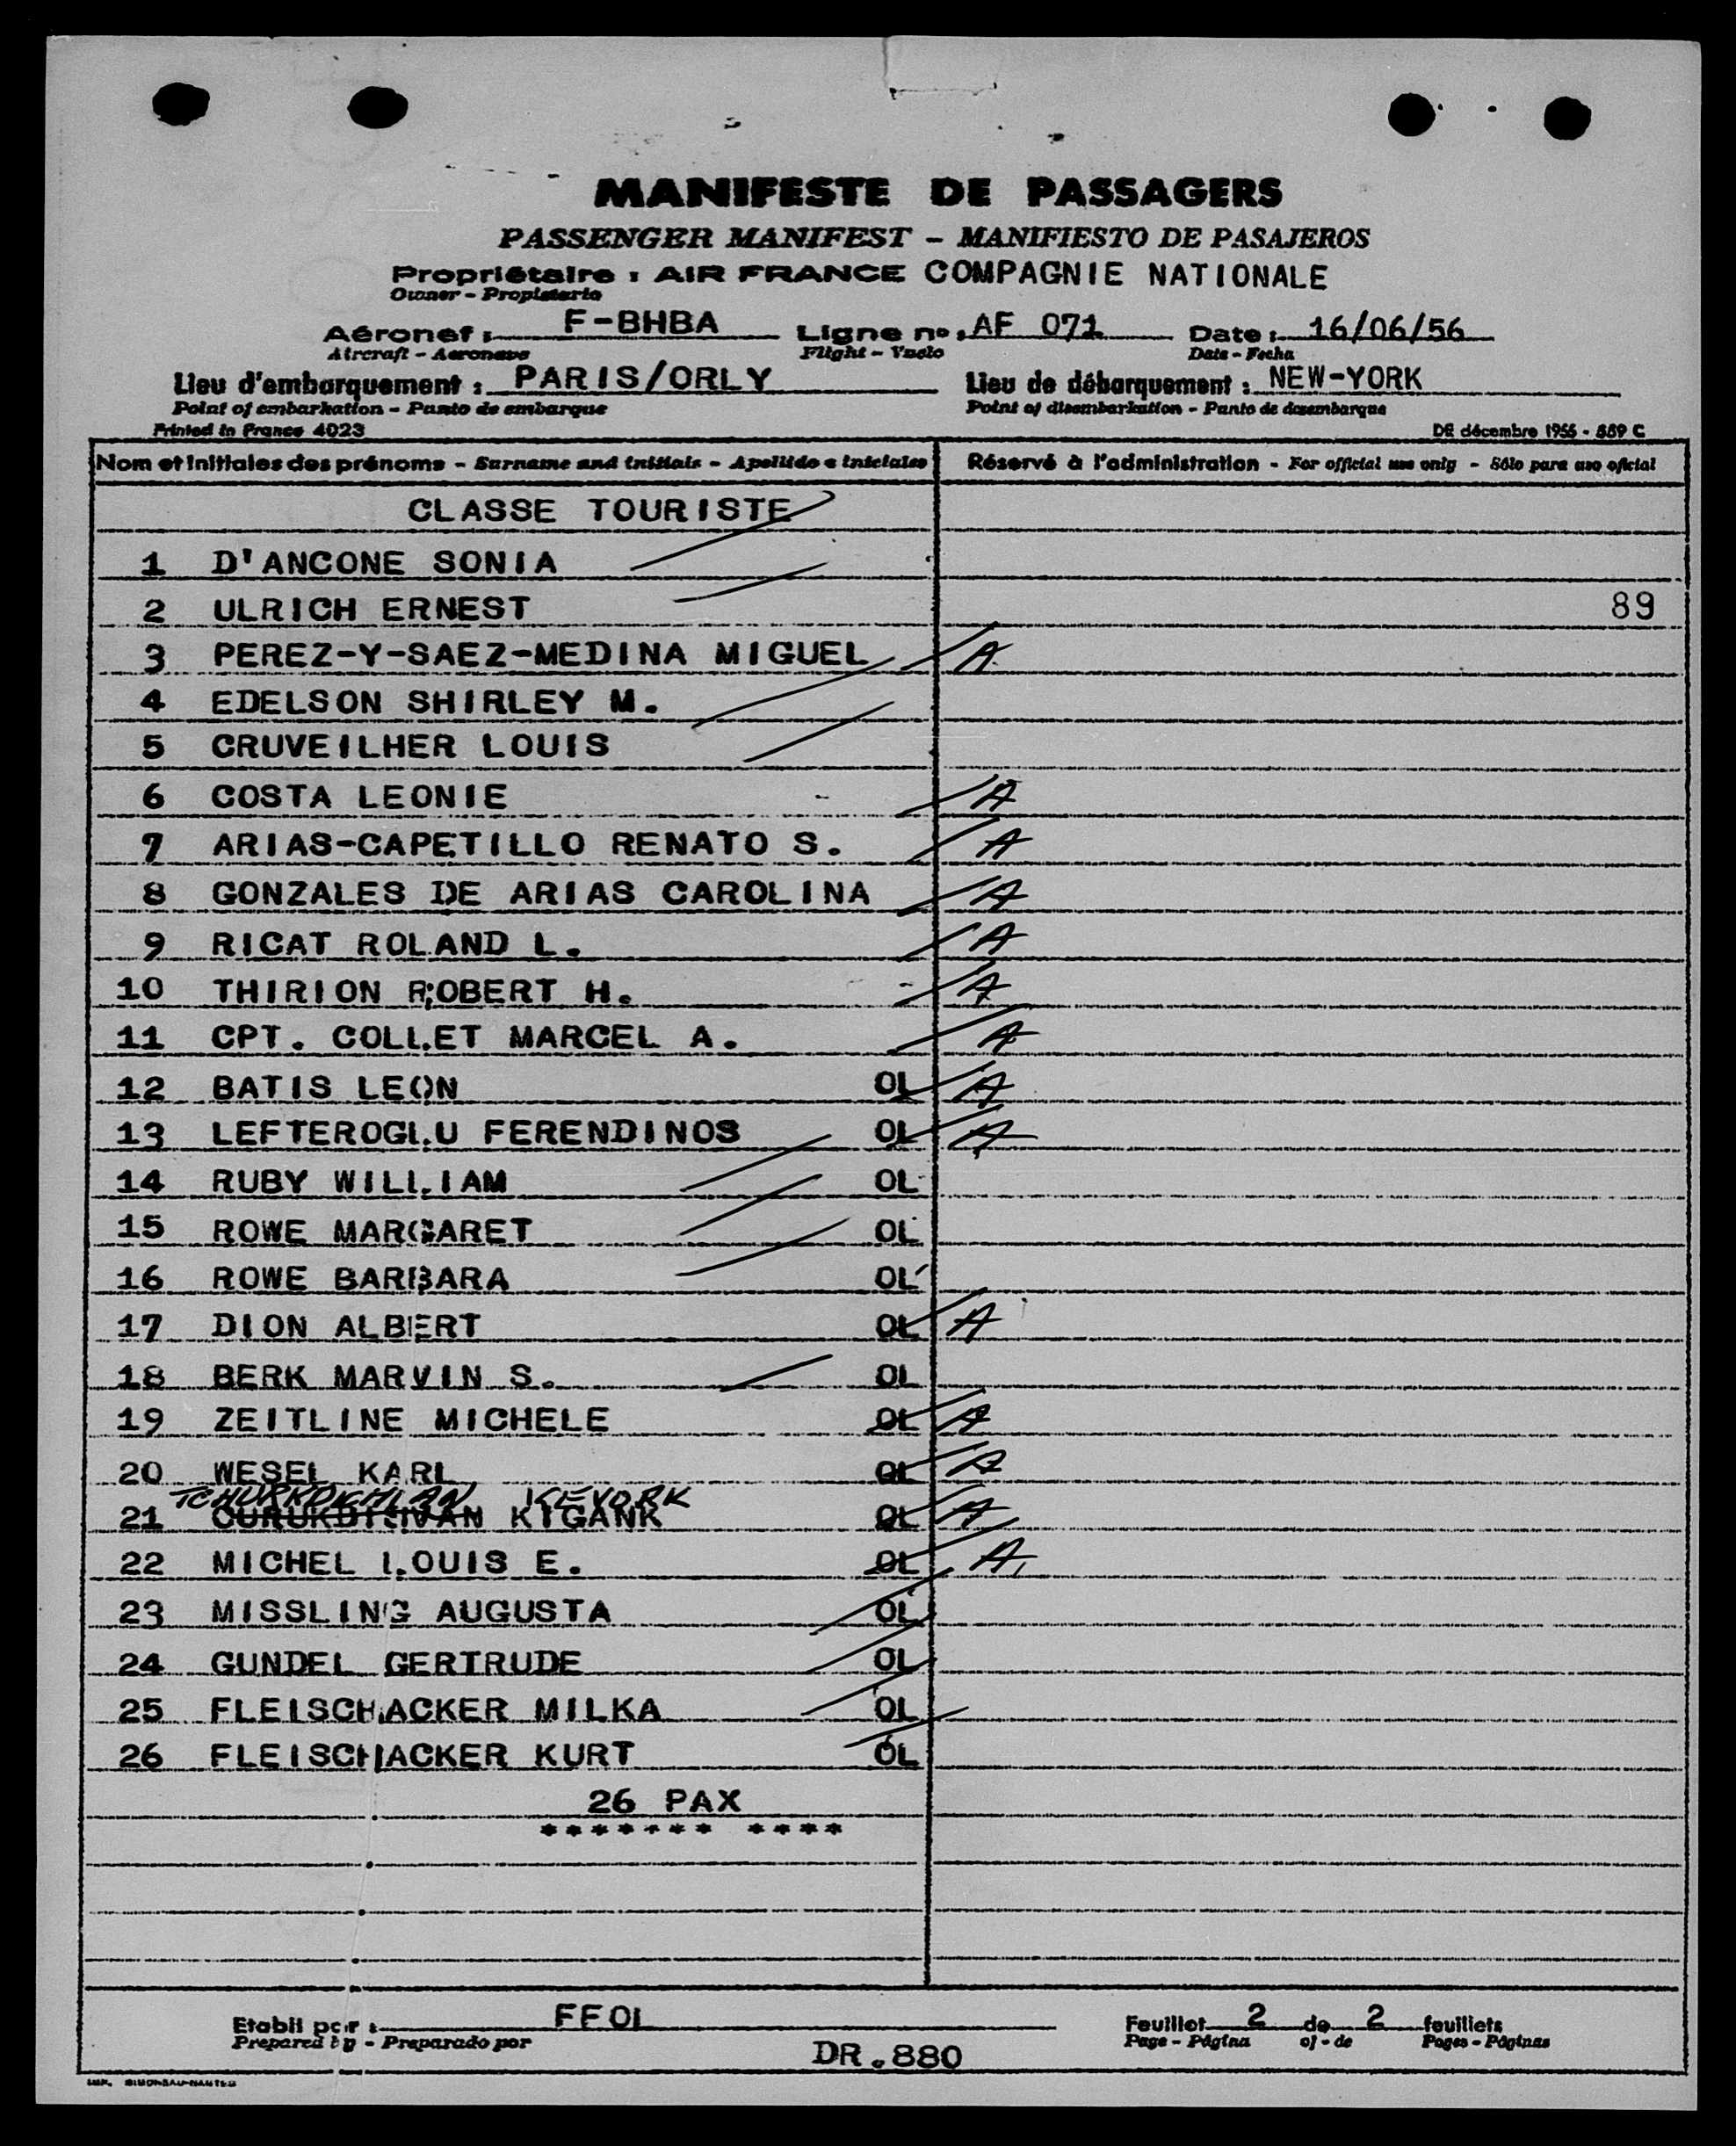 MANIFESTE DE PASSAGERS
PASSENGER MANIFEST - MANIFIESTO DE PASAJEROS
Propriétaire : AIR FRANCE COMPAGNIE NATIONALE
Owner - Propietario
Aéronef : F-BHBA Ligne no : AF 071 Date : 16/06/56
Aircraft - Aeronave Flight - Vuelo Date - Fecha
Lieu d'embarquement : PARIS/ORLY Lieu de débarquement : NEW-YORK
Point of embarkation - Punto de embarque Point of disembarkation - Punto de desembarque
Printed in France 4023 DR décembre 1955 - 559 C
Nom et initiales des prénoms - Surname and initials - Apellido e iniciales Réservé à l'administration - For official use only - Sólo para uso oficial
CLASSE TOURISTE
1 D'ANCONE SONIA
2 ULRICH ERNEST 89
3 PEREZ-Y-SAEZ-MEDINA MIGUEL A
4 EDELSON SHIRLEY M.
5 CRUVEILHER LOUIS
6 COSTA LEONIE A
7 ARIAS-CAPETILLO RENATO S. A
8 GONZALES DE ARIAS CAROLINA A
9 RICAT ROLAND L. A
10 THIRION ROBERT H. A
11 CPT. COLLET MARCEL A. A
12 BATIS LEON OL A
13 LEFTEROGLU FERENDINOS OL A
14 RUBY WILLIAM OL
15 ROWE MARGARET OL
16 ROWE BARBARA OL
17 DION ALBERT OL A
18 BERK MARVIN S. OL
19 ZEITLINE MICHELE OL A
20 WESEL KARL OL A
KEVORK
21 KIGANK OL A
22 MICHEL LOUIS E. OL A
23 MISSLING AUGUSTA OL
24 GUNDEL GERTRUDE OL
25 FLEISCHACKER MILKA OL
26 FLEISCHACKER KURT OL
26 PAX
******* ****
Etabli par : FFOL Feuillet 2 de 2 feuillets
Prepared by - Preparado por Page - Página of - de Pages - Páginas
DR.880
IMP. SIMONEAU-NANTES